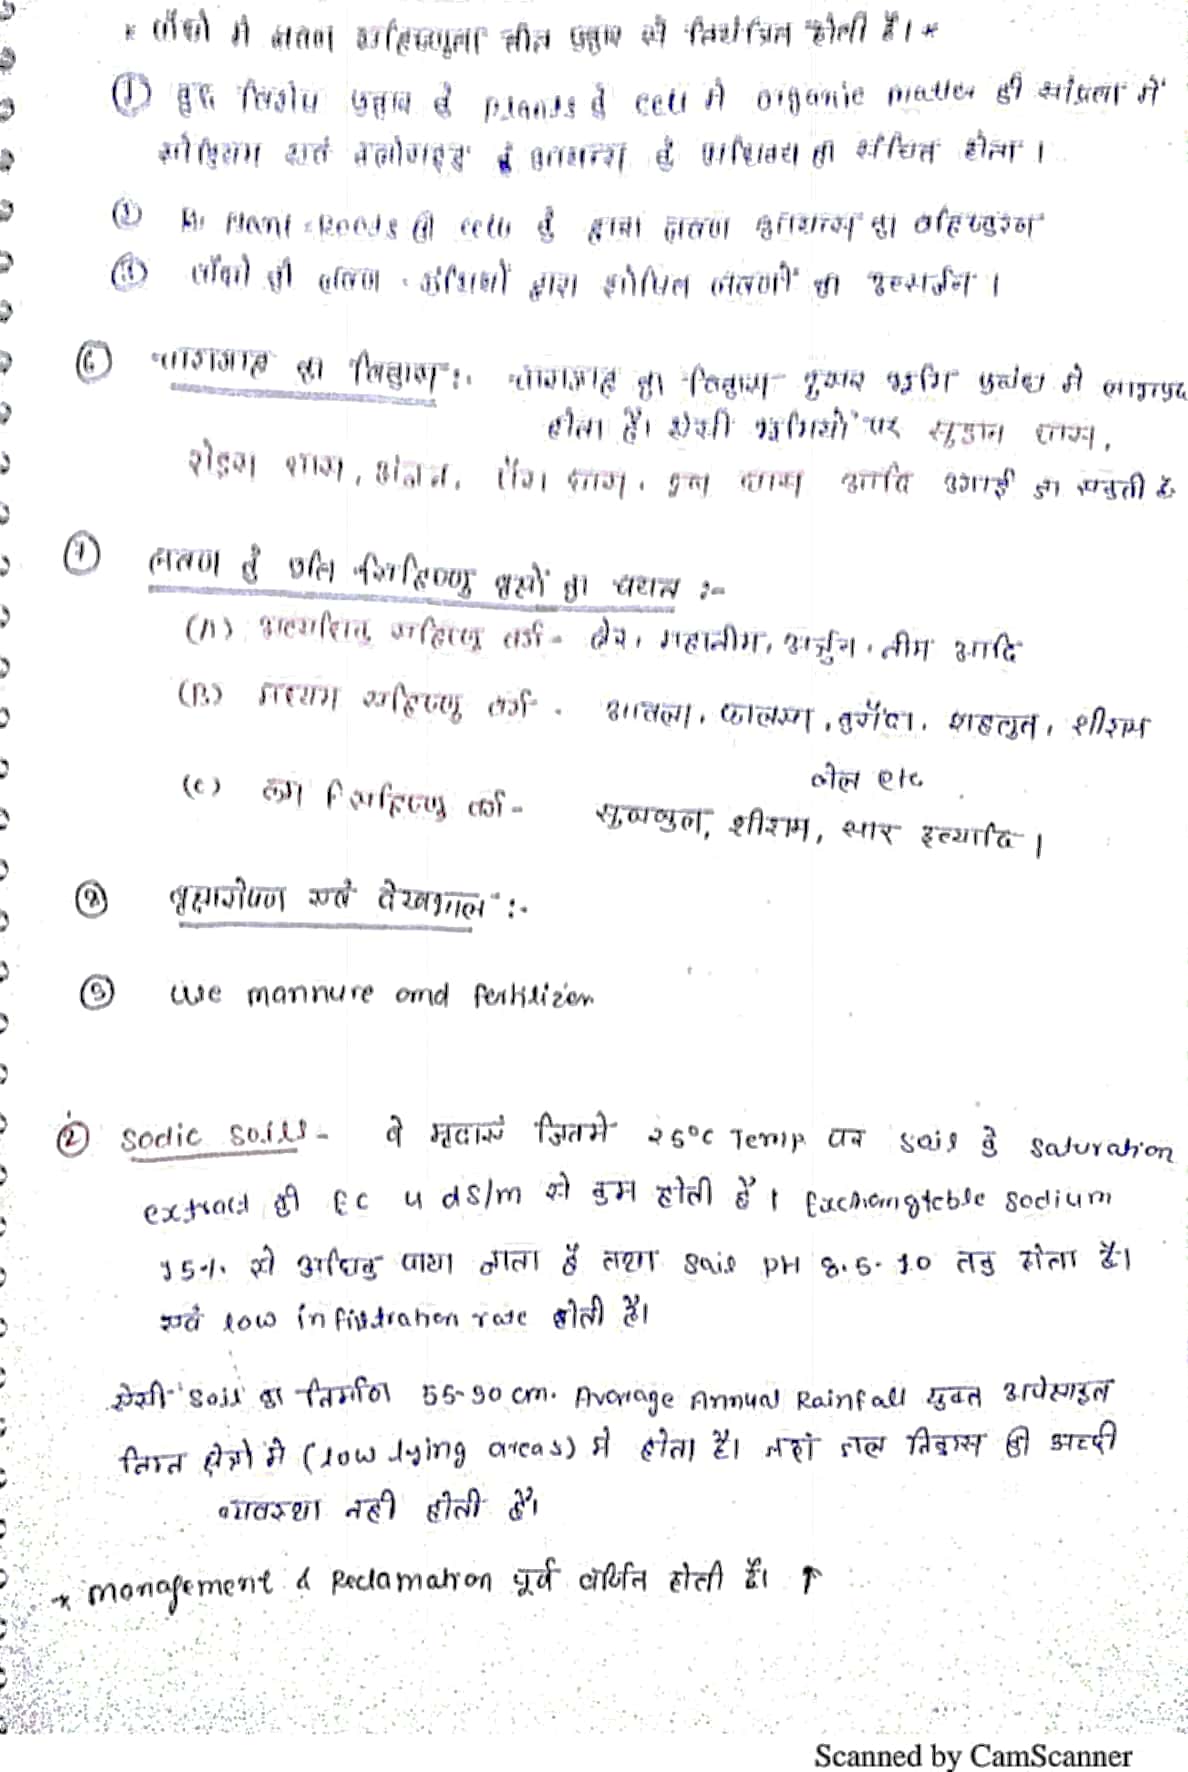 * पौधो में लवण सहिष्णुता तीन प्रकार से नियंत्रित होती है। *
① कुछ विशेष प्रकार के plants के cell में organic matter की सांद्रता में
सोडियम एवं क्लोराइड के आयनस के आधिक्य का संचित होना।
② Plant Roots की cell के द्वारा लवण आयनस का बहिष्करण
③ पौधो की लवण ग्रंथियों द्वारा शोषित लवणों का उत्सर्जन।
⑥ चारागाह का विकास :- चारागाह का विकास ऊसर भूमि प्रबंध में लाभप्रद
होता है। ऐसी भूमियों पर सूडान घास,
रोड्स घास, अंजन, पैरा घास, आदि उगाई जा सकती है
⑦ लवण के प्रति सहिष्णु वृक्षों का चयन :-
(A) अत्यधिक सहिष्णु वर्ग - बेर, महानीम, अर्जुन, नीम आदि
(B) मध्यम सहिष्णु वर्ग - आवला, फालसा, करौंदा, शहतूत, शीशम
बेल etc
(C) कम सहिष्णु वर्ग - सुबबूल, शीशम, इत्यादि।
⑧ वृक्षारोपण एवं देखभाल :-
⑨ use mannure and fertilizer
② Sodic Soils - वे मृदाएं जिनमे 25°C Temp पर Soil के saturation
extract की EC 4 dS/m से कम होती है। Exchangteble sodium
15% से अधिक पाया जाता है तथा Soil PH 8.5-10 तक होता है।
एवं low infiltration rate होती है।
ऐसी Soil का निर्माण 55-90 cm. Average Annual Rainfall युक्त अपेक्षाकृत
निम्न क्षेत्रो में (low lying areas) में होता है। जहां जल निकास की अच्छी
व्यवस्था नही होती है।
* management & Reclamation पूर्व वर्णित होती है। ↑
Scanned by CamScanner